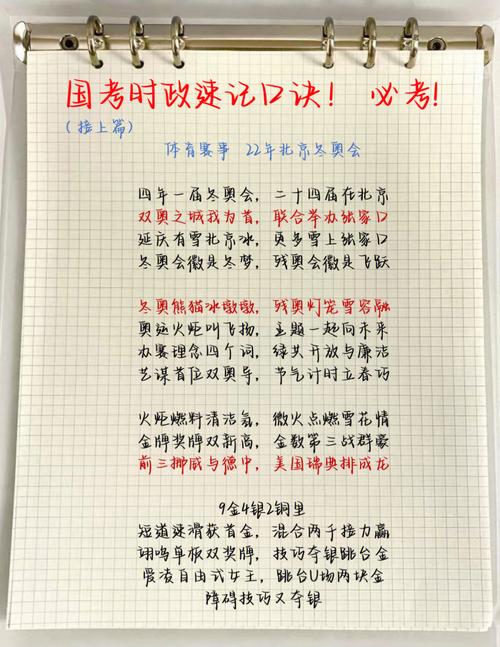 国考时政速记口诀! 必考!
(接上篇)
体育赛事 22年北京冬奥会
四年一届冬奥会,二十四届在北京
双奥之城我为首,联合举办张家口
延庆有雪北京冰,更多雪上张家口
冬奥会徽是冬梦,残奥会徽是飞跃
冬奥熊猫冰墩墩,残奥灯笼雪容融
奥运火炬叫飞扬,主题一起向未来
办赛理念四个词,绿共开放与廉洁
艺谋首位双奥导,节气计时立春巧
火炬燃料清洁氢,微火点燃雪花情
金牌奖牌双新高,金数第三战群豪
前三挪威与德中,美国瑞典排成龙
9金4银2铜里
短道速滑获首金,混合两千接力赢
翊鸣单板双奖牌,技巧夺银跳台金
爱凌自由式女王,跳台U场两块金
障碍技巧又夺银